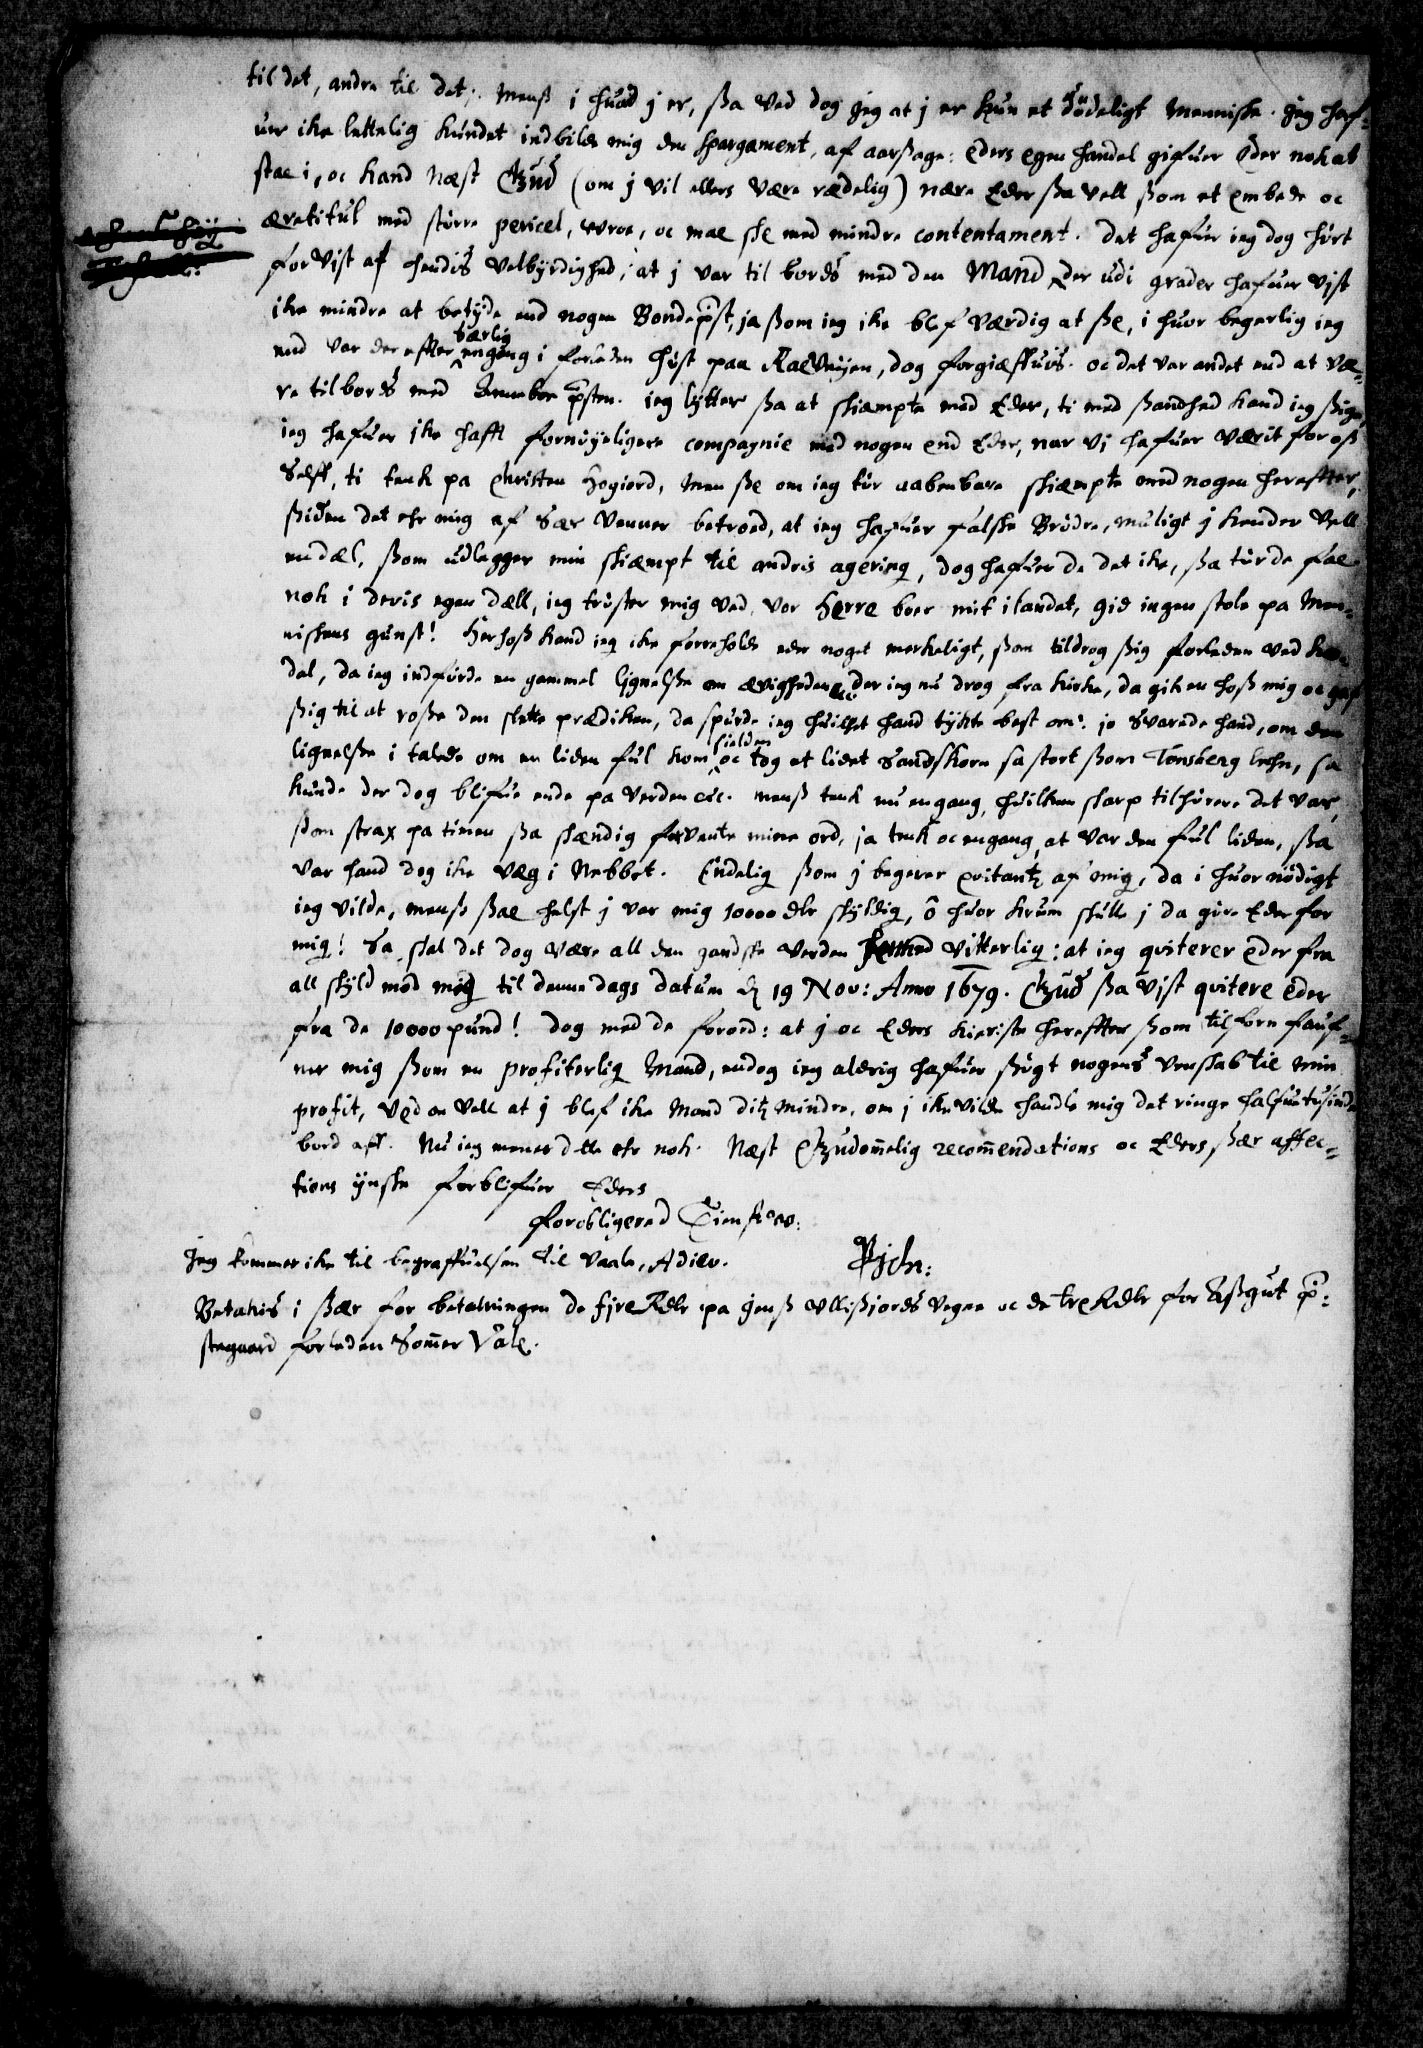 til det, andre til det; menß i huad j er, ßa ved dog jeg at j er kun et dödeligt menniske. Jeg haf-
uer ike lettelig kundet indbilde mig den spargament, af aarßage: eders egen handel gifuer eder nok at
staae i, oc kand næst Gud (om j vil ellers være rædelig) nære Eder ßa vell ßom et embede oc
æretitul med större pericel, uroe, oc mae ske med mindre contentament. det hafuer ieg dog hört
for vist af hendis velbÿrdighed, at j var til bords med den Mand der udi grader hafuer vist
ike mindre at betÿde end nogen Bondep̃st, ja ßom ieg ike blef værdig at ße, i huor begerlig ieg
end var der effter særlig engang i forleden höst paa Raevejen, dog forgiæffuis. oc det var andet end at væ-
re til bords med p̃sten. ieg lÿster ßa at skiæmpte med Eder, ti med ßandhed kand ieg ßige,
ieg hafuer ike hafft fornöÿeligere compagnie med nogen end Eder, nar vj hafuer værit for oß
selff, ti tenk pa Christen Hogiord, men ße om ieg tör aabenbare skiæmpte med nogen hereffter,
ßiden det ehr mig af sær venner betroed, at ieg hafuer falske Brödre, muligt j kender vell
en dæl, ßom udlegger min skiæmpt til andris agering, dog hafuer de det ike, ßa törde fae
nok i deris egen dæll, ieg tröster mig ved vor Herre boer mit i landet, gid ingen stole pa Men-
niskens gunst! Herhoß kand ieg ike forreholde eder noget merkeligt, ßom tildrog ßig forleden ved
dal, da ieg indförde en gammel lignelße om ævigheden, der ieg nu drog fra kirke, da gik en hoß mig oc gaf
ßig til at roße den slette prædiken, da spurde ieg huilket hand tÿkte best om: jo svarede hand, om den
lignelße i talede om en liden ful kom sielden oc tog et lidet Sandskorn sa stort ßom Tönsberg lehn, sa
kunde der dog blifue ende pa verden etc. menß tenk nu engang, huilken skarp tilhörere det var,
ßom strax pa timen ßa skændig forvente mine ord, ja tenk oc engang, at var den ful liden, ßa
var hand dog ike væg i Nebbet. Endelig ßom j begerer qvitantz af mig, da i huor nödigt
ieg vilde, menß ßae helst j var mig 10000 dlr skÿldig, ô huor krum skulle j da giöre Eder for
mig! Sa skal det dog være all den gandske verden vitterlig: at ieg qviterer eder fra
all skÿld mod mig til denne dags datum d. 19 Nov: Anno 1679. Gud ßa vist qvitere eder
fra de 10000 pund! dog med de forord: at j oc Eders kieriste hereffter ßom tilforn fauf-
ner mig ßom en profiterlig Mand, endog ieg aldrig hafuer ßögt nogens venskab til min
profit, ved oc vell at j blef ike Mand ditz mindre, om j ike vilde handle mig det ringe halfuetusinde
bord aff. Nu ieg mener dette ehr nok. Næst Gudom̃elig recom̃endations oc Eders ßær affec-
tions önske forblifuer Eders
forobligered Tienst
Jeg kommer ike til begraffuelsen til Vaale, Adieu.
Betakis i ßær for betalningen de fjre Rdlr pa Jenß Ullisjords vegne oc de tre Rdlr for Aßgut p̃-
stegaard forleden Som̃er Vale.